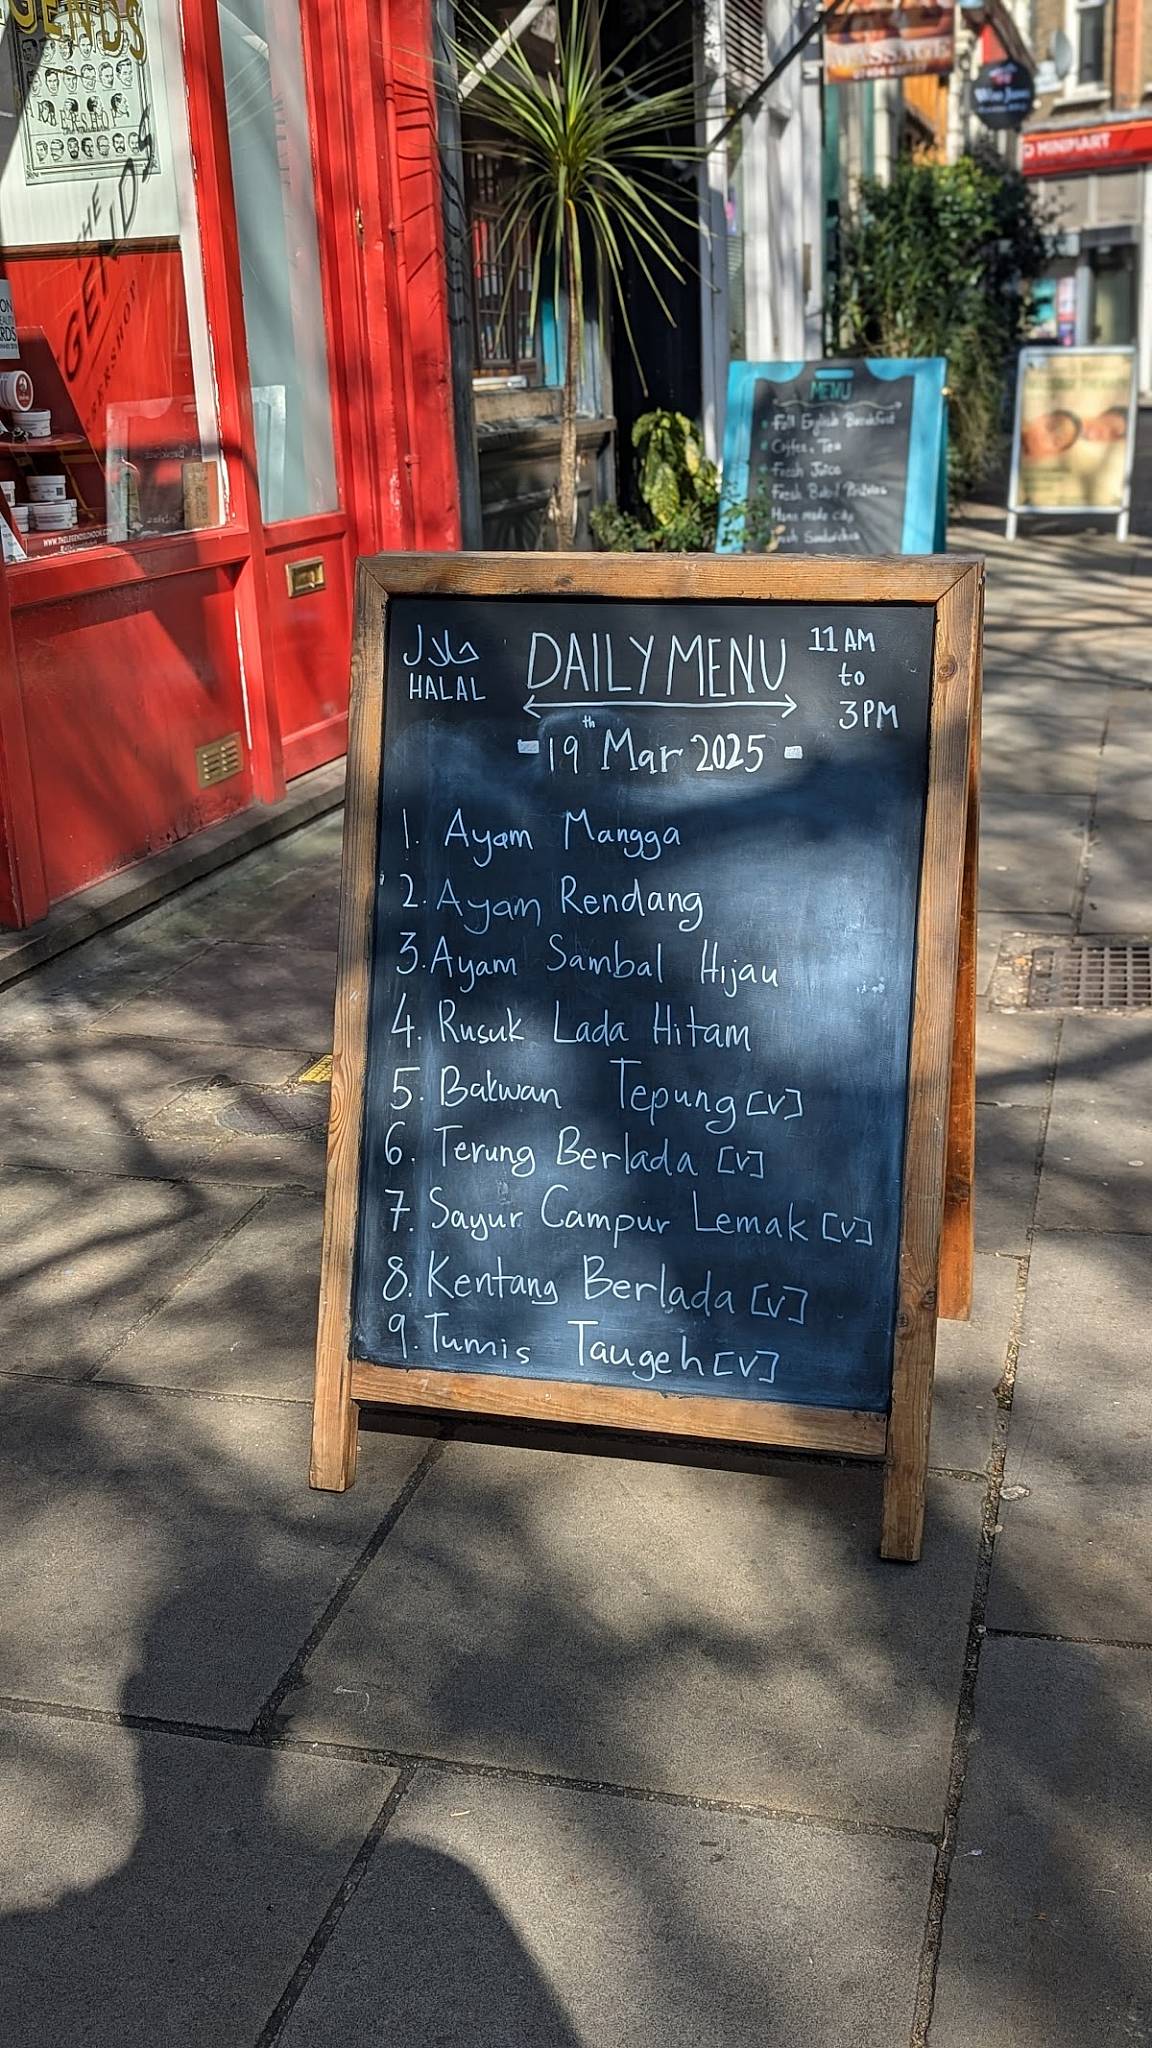 حلال
HALAL
DAILY MENU
11 AM
to
3PM
19th Mar 2025
1. Ayam Mangga
2. Ayam Rendang
3. Ayam Sambal Hijau
4. Rusuk Lada Hitam
5. Bakwan Tepung [v]
6. Terung Berlada [v]
7. Sayur Campur Lemak [v]
8. Kentang Berlada [v]
9. Tumis Taugeh [v]
MENU
Full English Breakfast
Coffee, Tea
Fresh Juice
Fresh Baked Potatoes
MASSAGE
WWW.THELEGENDSLONDON.CO